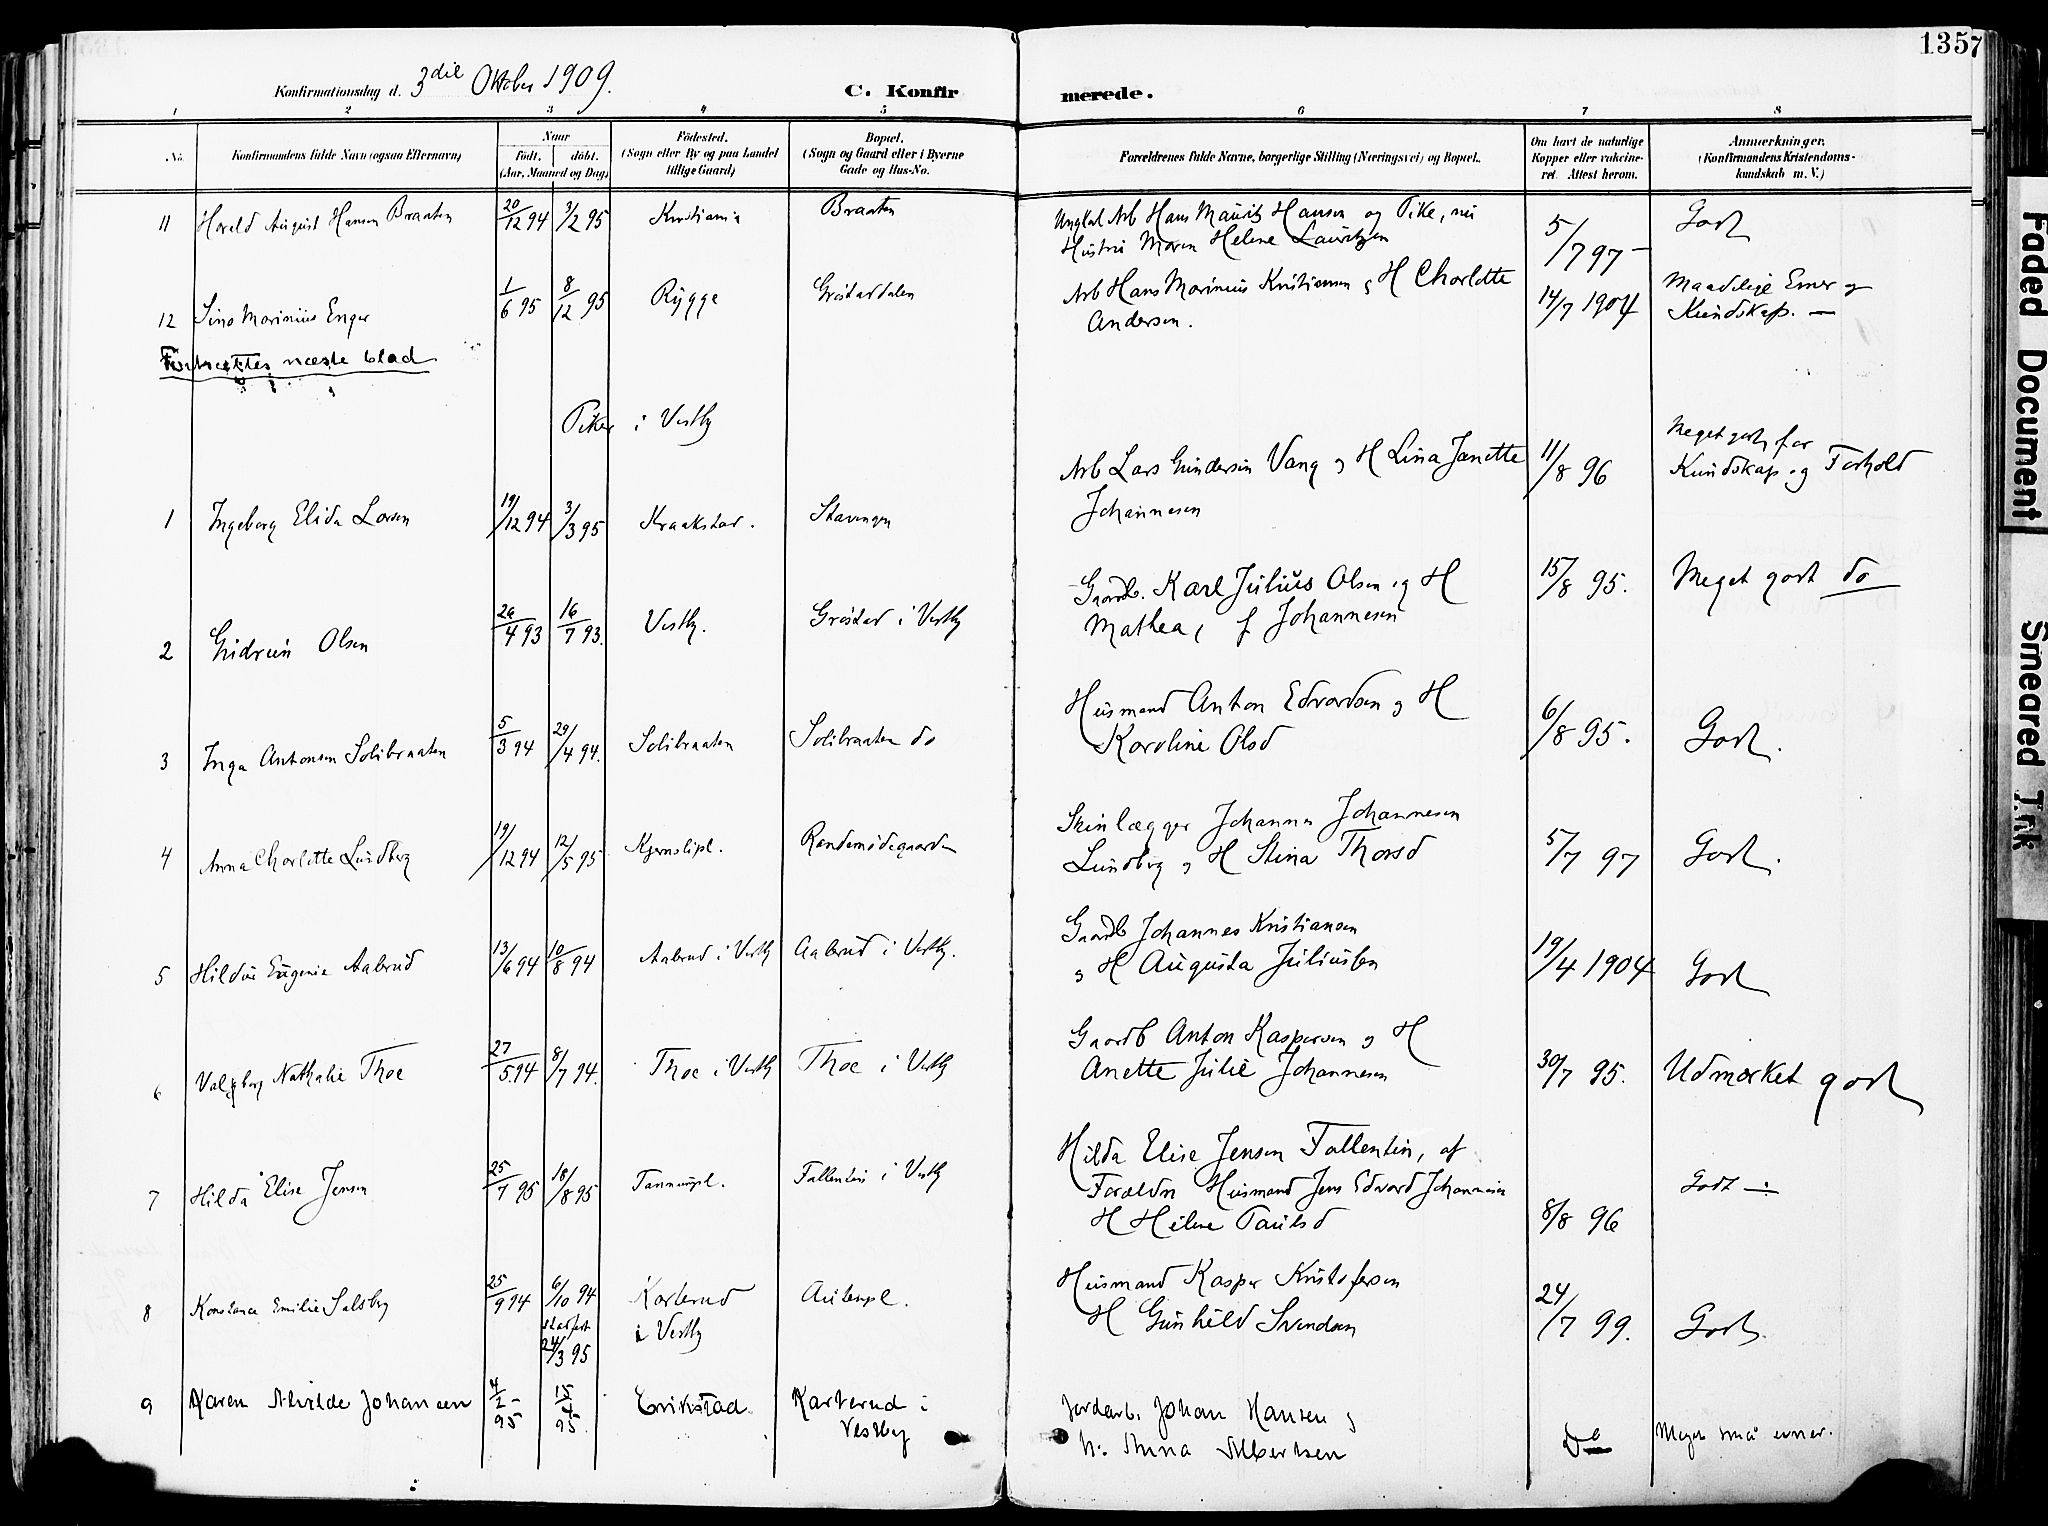 1357
Konfirmationsdag d. 3die Oktober 1909.
C. Konfirmerede.
1 2 3 4 5 6 7 8
No. Konfirmandens fulde Navn (ogsaa Efternavn) Naar født. døbt. (Aar, Maaned og Dag) Fødested. (Sogn eller By og paa Landet tillige Gaard) Bopæl. (Sogn og Gaard eller i Byerne Gade og Hus-No. Forældrenes fulde Navne, borgerlige Stilling (Næringsvei) og Bopæl. Om havt de naturlige Kopper eller vakcineret. Attest herom. Anmærkninger. (Konfirmandens Kristendomskundskab m. V.)
11 Harald August Hansen Braaten 20/12 94 3/2 95 Kristiania Braaten Ungkal Arb Hans Mauritz Hansen og Pike, nu
Hustru Maren Helene Lauritzen 5/7 97 – Godt
12 Sino Marinius Enger 1/6 95 8/12 95 Rygge Grøstaddalen Arb Hans Marinius Kristiansen og H Charlotte
Andersen. 14/7 1904 Maadelige Evner og
Kundskap. –
Fortsættes næste blad
Piker i Vestby
1 Ingeborg Elida Larsen 19/12 94 3/3 95 Kraakstad. Stavengen Arb Lars Gundersen Vang og H Lina Janette
Johannesen 11/8 96 Meget godt for
Kundskap og Forhold
2 Gudrun Olsen 26/4 93 16/7 93. Vestby. Grøstad i Vestby Gaardb. Karl Julius Olsen og H
Mathea, f Johannesen 15/8 95. Meget godt do
3 Inga Antonsen Solibraaten 5/3 94 29/4 94. Solibraaten Solibraaten do Husmand Anton Edvardsen og H
Karoline Olsd 6/8 95. Godt.
4 Anna Charlotte Lundberg 19/12 94 12/5 95 Kjernslipl. Randemødegaarden Stenlægger Johannes Johannesen
Lundberg og H Stina Thorsd 5/7 97 Godt.
5 Hildur Eugenie Aabrud 13/6 94 10/8 94 Aabrud i Vestby Aabrud i Vestby. Gaardb Johannes Kristiansen
og H Augusta Juliussen 19/4 1904 Godt
6 Valgborg Nathalie Thoe 27/5 94 8/7 94. Thoe i Vestby Thoe i Vestby Gaardb Anton Kaspersen og H
Anette Julie Johannesen 30/7 95. Udmærket godt
7 Hilda Elise Jensen 25/7 95 18/8 95 Tannumpl. Fallentin i Vestby Hilda Elise Jensen Fallentin, af
Forældre Husmand Jens Edvard Johannesen
H Helene Paulsd 8/8 96 Godt –
8 Konstance Emilie Salsberg 25/9 94 6/10 94
stadfest
24/3 95 Karlerud
i Vestby Autenpl. Husmand Kasper Kristofersen
H Gunhild Svendsen 24/7 99. Godt.
9 Karen Alvilde Johansen 4/2 – 95 15/4 95. Erikstad. Karlerud i
Vestby Jordarb. Johan Hansen og
h: Anna Albertsen Do Meget små evner.
Faded Document
Smeared Ink